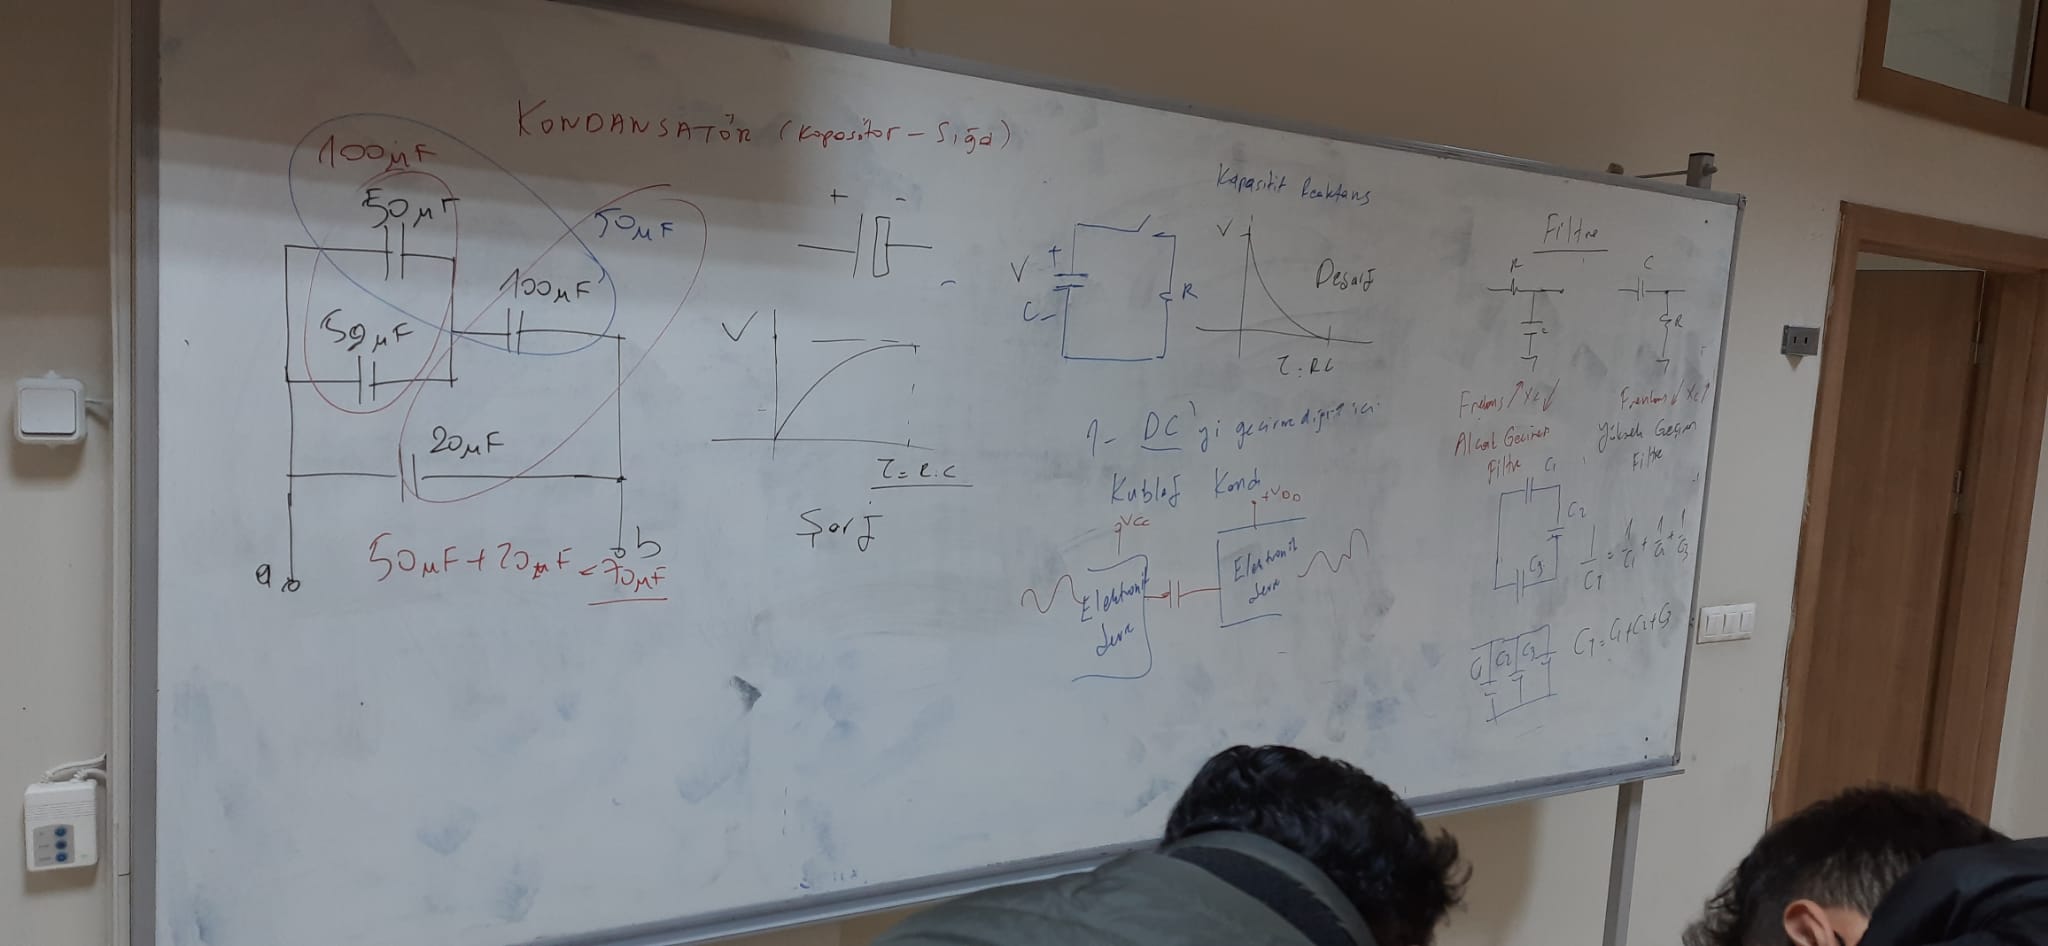 KONDANSATÖR (Kapasitör - Sığa)
100μF
50μF
50μF
100μF
50μF
20μF
a
b
50μF + 20μF = 70μF
+ -
V
τ = R.C
Şarj
Kapasitif Reaktans
V
+
C -
R
V
Deşarj
τ = RC
1- DC'yi geçirmediği için
Kublaj Kond
+Vcc
+VDD
Elektronik
Devre
Elektronik
Devre
Filtre
R
C
C
R
Frekans ↑ Xc ↓
Alçak Geçiren
Filtre
Frekans ↓ Xc ↑
Yüksek Geçiren
Filtre
C1
C2
C3
C1 C2 C3
CT = C1 + C2 + C3